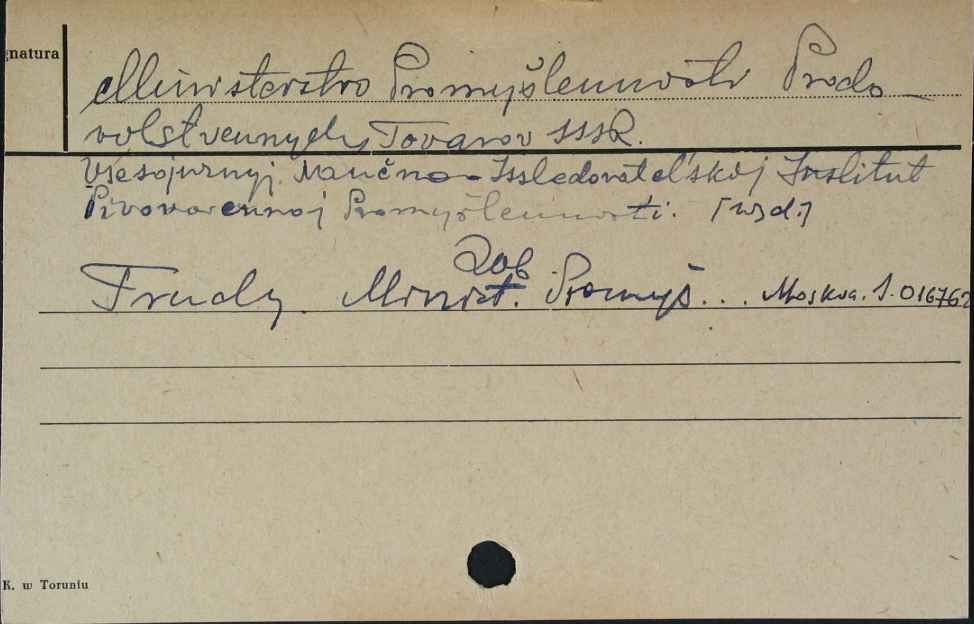 gnatura
Ministerstvo Promyšlennosti Prodo-
volstvennych Tovarov SSSR.
Vsesojuznyj Naučno-Issledovatel'skij Institut
Pivovarennoj Promyšlennosti. [wyd.]
Zob.
Trudy Minist. Promyš... Moskva. S.016762
K. w Toruniu